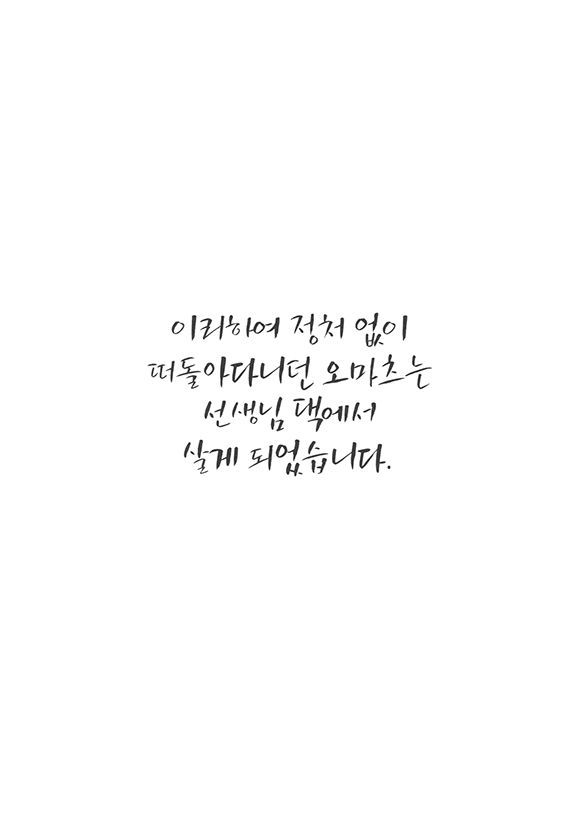 이리하여 정처 없이
떠돌아다니던 오마츠는
선생님 댁에서
살게 되었습니다.